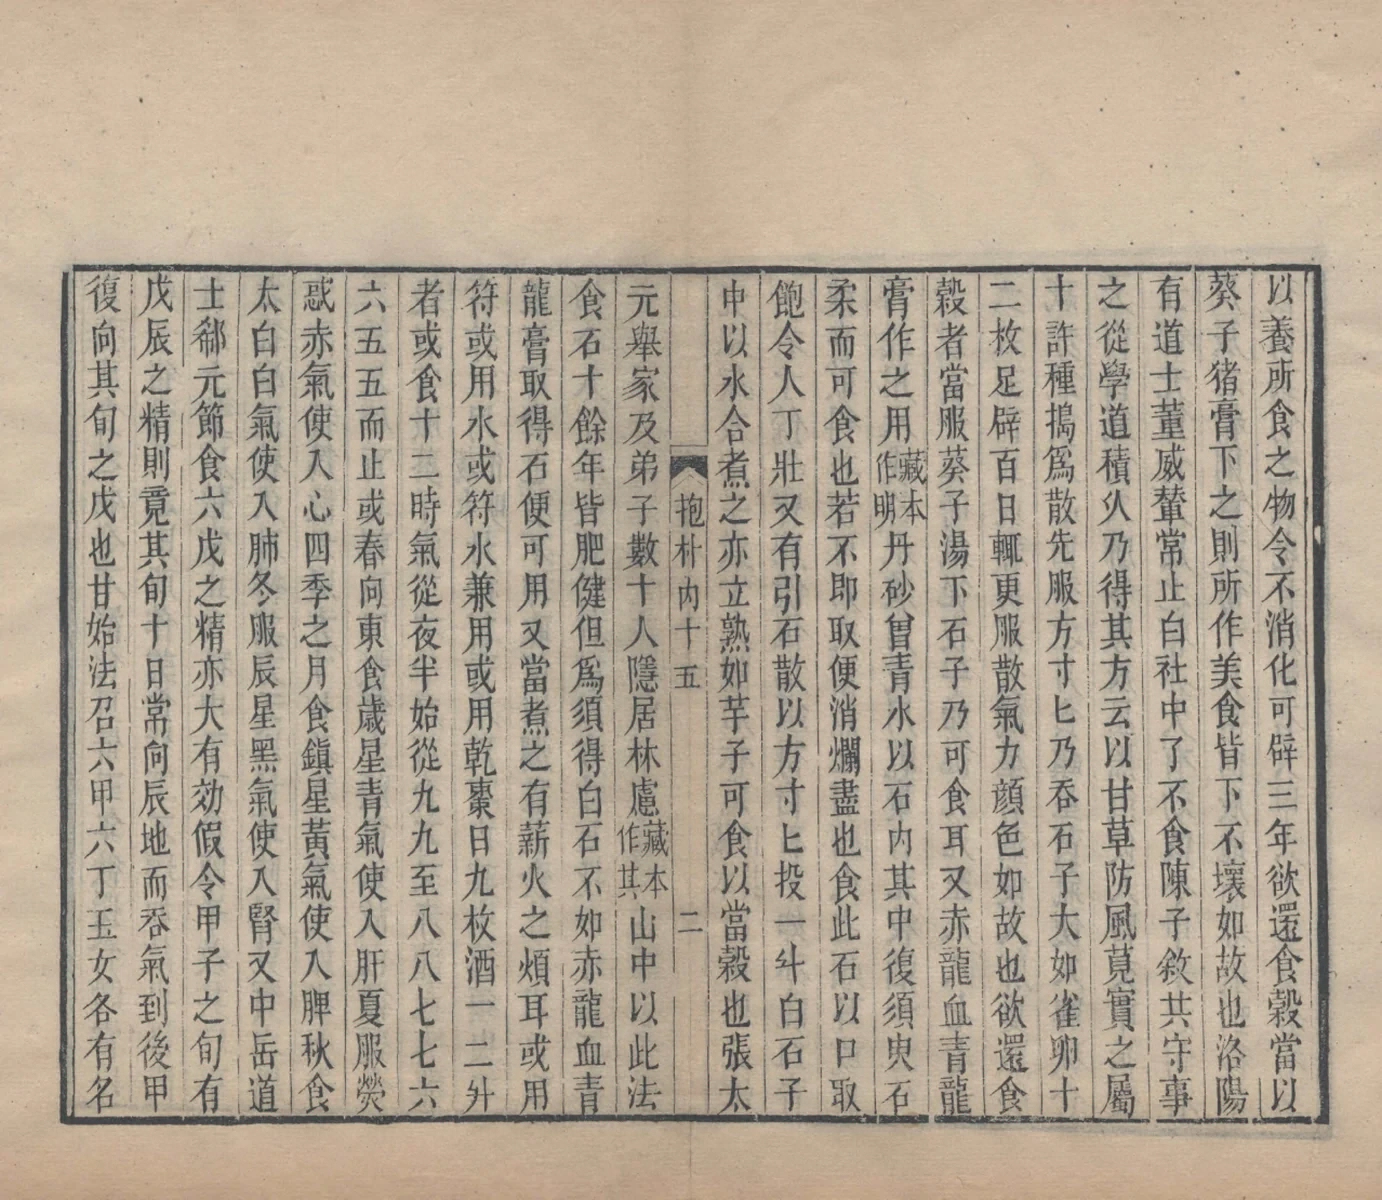 以養所食之物令不消化可辟三年欲還食穀當以
葵子猪膏下之則所作美食皆下不壞如故也洛陽
有道士董威輦常止白社中了不食陳子敘共守事
之從學道積久乃得其方云以甘草防風莧實之屬
十許種搗爲散先服方寸匕乃吞石子大如雀卵十
二枚足辟百日輒更服散氣力顔色如故也欲還食
穀者當服葵子湯下石子乃可食耳又赤龍血青龍
膏作之用藏本作明丹砂曾青水以石内其中復須臾石
柔而可食也若不即取便消爛盡也食此石以口取
飽令人丁壯又有引石散以方寸匕投一斗白石子
中以水合煮之亦立熟如芋子可食以當穀也張太
抱朴内十五 二
元舉家及弟子數十人隱居林慮藏本作其山中以此法
食石十餘年皆肥健但爲須得白石不如赤龍血青
龍膏取得石便可用又當煮之有薪火之煩耳或用
符或用水或符水兼用或用乾棗日九枚酒一二升
者或食十二時氣從夜半始從九九至八八七七六
六五五而止或春向東食歲星青氣使入肝夏服熒
惑赤氣使入心四季之月食鎭星黃氣使入脾秋食
太白白氣使入肺冬服辰星黑氣使入腎又中岳道
士郗元節食六戊之精亦大有効假令甲子之旬有
戊辰之精則竟其旬十日常向辰地而吞氣到後甲
復向其旬之戊也甘始法召六甲六丁玉女各有名